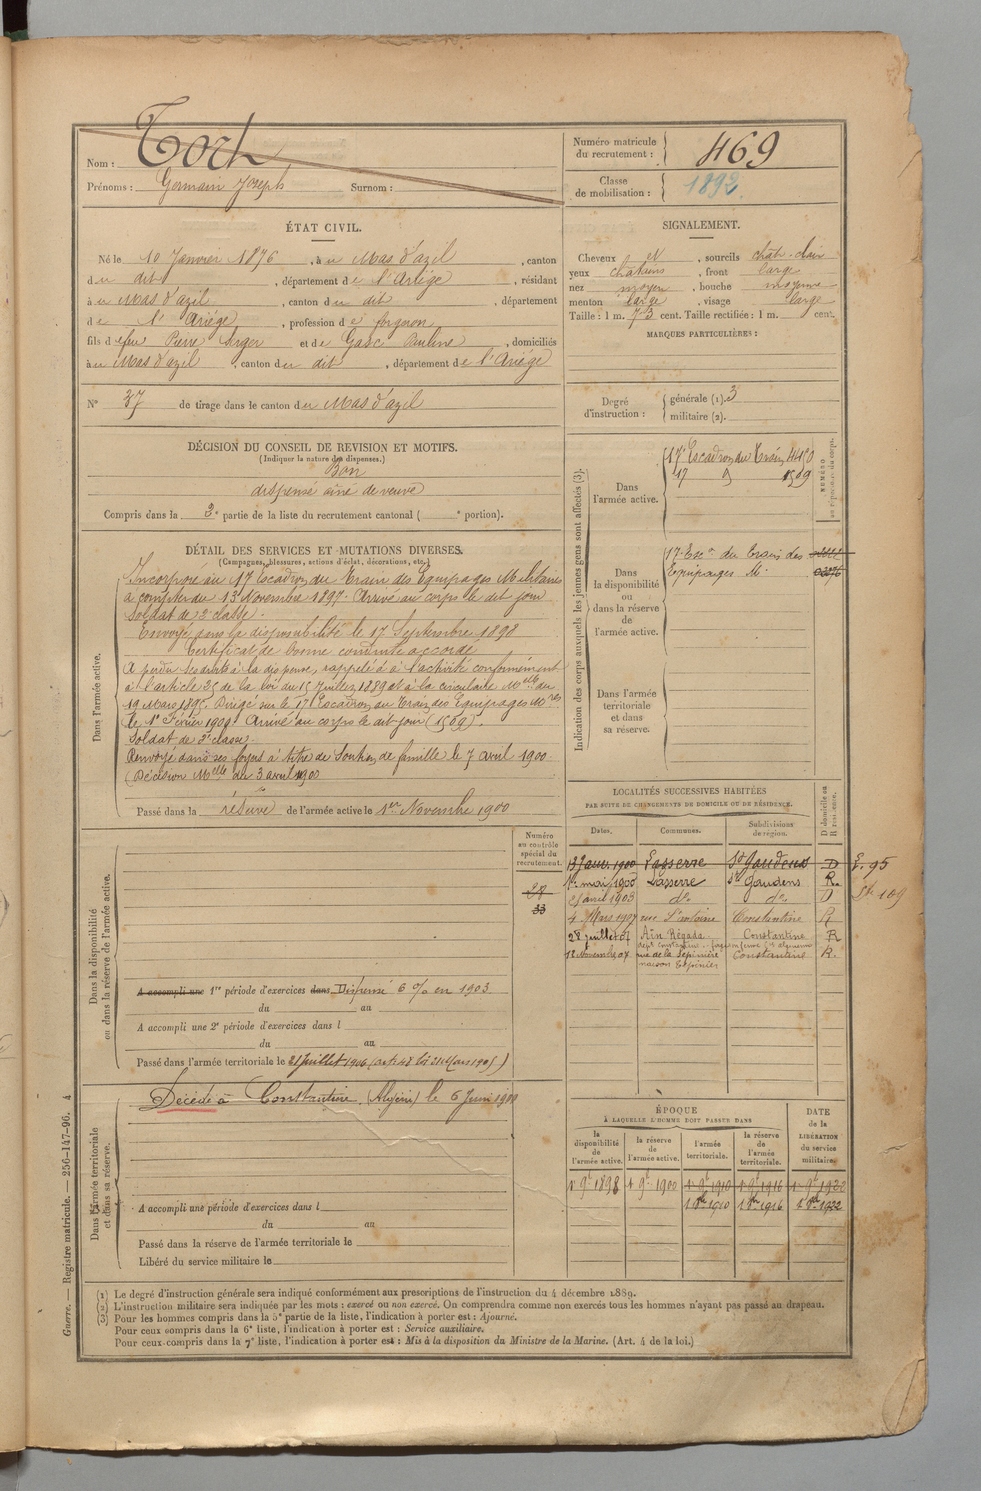 Nom : Torh
Prénoms : Germain Joseph Surnom :
Numéro matricule du recrutement : 469
Classe de mobilisation : 1892
ÉTAT CIVIL.
Né le 10 Janvier 1876, à u Mas d'azil, canton
d u dit, département de l'Ariège, résidant
à u Mas d'azil, canton d u dit, département
de l'Ariège, profession de forgeron
fils d feu Pierre et de Gasc Pauline, domiciliés
à u Mas d'azil, canton du dit, département de l'Ariège
N° 37 de tirage dans le canton du Mas d'azil
DÉCISION DU CONSEIL DE REVISION ET MOTIFS.
(Indiquer la nature des dispenses.)
Bon
dispensé aîné de veuve
Compris dans la 2e partie de la liste du recrutement cantonal ( e portion).
SIGNALEMENT.
Cheveux N, sourcils chât-clair
yeux chatains, front large
nez moyen, bouche moyenne
menton large, visage large
Taille : 1 m. 73 cent. Taille rectifiée : 1 m. cent.
MARQUES PARTICULIÈRES :
Degré d'instruction : générale (1). 3
militaire (2).
DÉTAIL DES SERVICES ET MUTATIONS DIVERSES.
(Campagnes, blessures, actions d'éclat, décorations, etc.)
Dans l'armée active.
Incorporé au 17e Escadron du Train des Equipages Militaires
à compter du 13 Novembre 1897. Arrivé au corps le dit jour
Soldat de 2e classe.
Envoyé dans la disponibilité le 17 Septembre 1898
Certificat de bonne conduite accordé
A perdu ses droits à la dispense, rappelé à l'activité conformément
à l'article 25 de la loi du 15 Juillet 1889 et à la circulaire Melle du
19 Mars 1895. Dirigé sur le 17e Escadron du Train des Equipages Mres
le 1er Février 1900. Arrivé au corps le dit jour (1569)
Soldat de 2e classe.
Renvoyé dans ses foyers à titre de Soutien de famille le 7 avril 1900.
(Décision Melle du 3 avril 1900
Passé dans la réserve de l'armée active le 1er Novembre 1900
Indication des corps auxquels les jeunes gens sont affectés (3).
NUMÉRO au répertoire du corps.
Dans l'armée active.
17e Escadron du Train 4450
17 d 1569
Dans la disponibilité ou dans la réserve de l'armée active.
17e Escon du Train des
Equipages Mres
Dans l'armée territoriale et dans sa réserve.
LOCALITÉS SUCCESSIVES HABITÉES
PAR SUITE DE CHANGEMENTS DE DOMICILE OU DE RÉSIDENCE.
Dates. Communes. Subdivisions de région. D domicile ou R résidence.
13 Janv. 1900 Lasserre St Gaudens D
1er mai 1900 Lasserre St Gaudens R.
21 avril 1903 do do D
4 Mars 1907 rue St Antoine Constantine R
28 juillet 07 Aïn Régada Constantine R
12 Novembre 07 rue de la Pépinière Constantine R.
Dans la disponibilité ou dans la réserve de l'armée active.
Numéro au contrôle spécial du recrutement.
33
A accompli une 1re période d'exercices dans Dispensé 6 % en 1903
du au
A accompli une 2e période d'exercices dans l
du au
Passé dans l'armée territoriale le 21 Juillet 1906
Dans l'armée territoriale et dans sa réserve.
Décédé à Constantine (Algérie) le 6 Juin
A accompli une période d'exercices dans l
du au
Passé dans la réserve de l'armée territoriale le
Libéré du service militaire le
ÉPOQUE
À LAQUELLE L'HOMME DOIT PASSER DANS
la disponibilité de l'armée active. la réserve de l'armée active. l'armée territoriale. la réserve de l'armée territoriale. DATE de la LIBÉRATION du service militaire.
1er 9bre 1898 1er 9bre 1900 1er 9bre 1910 1er 9bre 1916 1er 9bre 1922
1 8bre 1910 1 8bre 1916 1 8bre 1922
(1) Le degré d'instruction générale sera indiqué conformément aux prescriptions de l'instruction du 4 décembre 1889.
(2) L'instruction militaire sera indiquée par les mots : exercé ou non exercé. On comprendra comme non exercés tous les hommes n'ayant pas passé au drapeau.
(3) Pour les hommes compris dans la 5e partie de la liste, l'indication à porter est : Ajourné.
Pour ceux compris dans la 6e liste, l'indication à porter est : Service auxiliaire.
Pour ceux compris dans la 7e liste, l'indication à porter est : Mis à la disposition du Ministre de la Marine. (Art. 4 de la loi.)
Guerre. — Registre matricule. — 256-147-96. 4